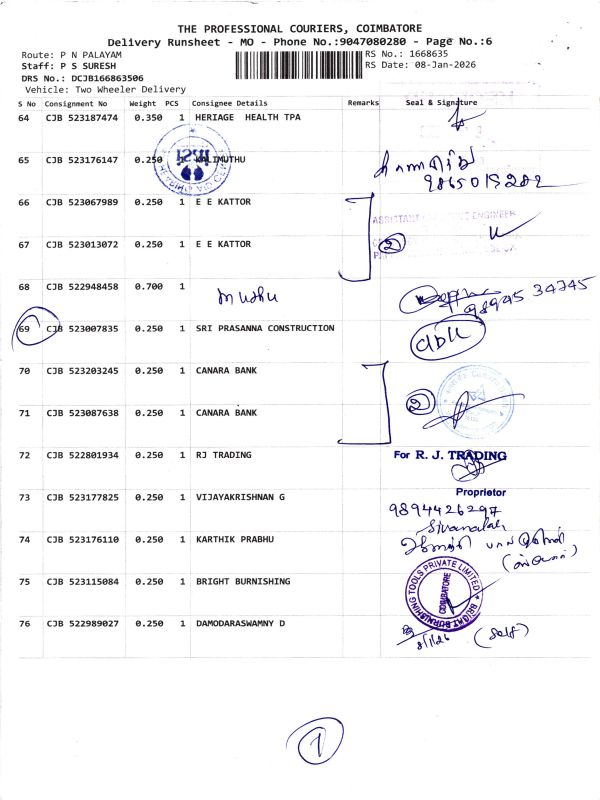 THE PROFESSIONAL COURIERS, COIMBATORE
Delivery Runsheet - MO - Phone No.:9047080280 - Page No.:6
Route: P N PALAYAM
RS No.: 1668635
Staff: P S SURESH
RS Date: 08-Jan-2026
DRS No.: DCJB166863506
Vehicle: Two Wheeler Delivery
S No Consignment No Weight PCS Consignee Details Remarks Seal & Signature
64 CJB 523187474 0.350 1 HERIAGE HEALTH TPA
65 CJB 523176147 0.250 KALIMUTHU
9865019282
66 CJB 523067989 0.250 1 E E KATTOR
ASSISTANT ENGINEER
67 CJB 523013072 0.250 1 E E KATTOR
2
68 CJB 522948458 0.700 1 muthu
98945 34745
69 CJB 523007835 0.250 1 SRI PRASANNA CONSTRUCTION
70 CJB 523203245 0.250 1 CANARA BANK
2
71 CJB 523087638 0.250 1 CANARA BANK
72 CJB 522801934 0.250 1 RJ TRADING For R. J. TRADING
Proprietor
73 CJB 523177825 0.250 1 VIJAYAKRISHNAN G
9894426297
74 CJB 523176110 0.250 1 KARTHIK PRABHU
75 CJB 523115084 0.250 1 BRIGHT BURNISHING
BRIGHT BURNISHING TOOLS PRIVATE LIMITED
COIMBATORE
76 CJB 522989027 0.250 1 DAMODARASWAMNY D
8/1/26 (Self)
1